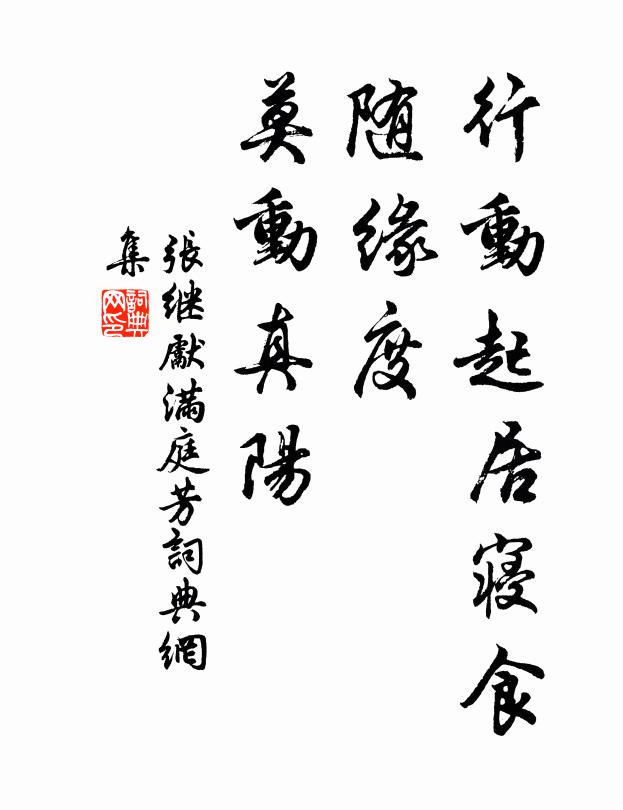 行動起居寝食
随緣度
莫動真陽
張继獻满庭芳詞典網
集
詞典
网印